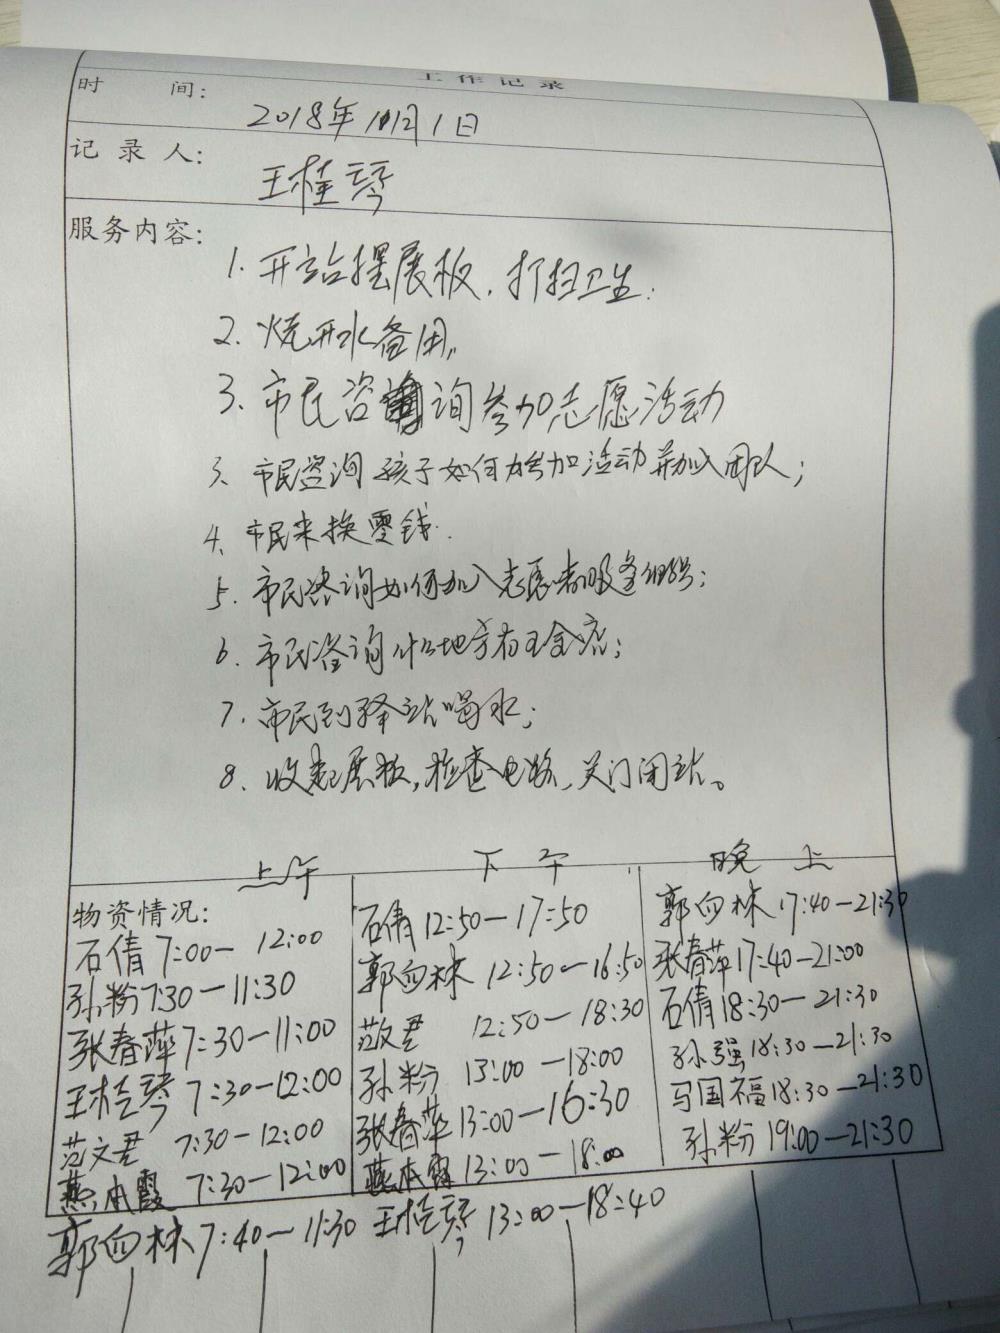 工作记录
时 间: 2018年11月1日
记录人: 王桂琴
服务内容:
1. 开站摆展板,打扫卫生.
2. 烧开水备用。
3. 市民咨询参加志愿活动
3、市民咨询孩子如何参加活动并加入团队;
4、市民来换零钱.
5. 市民咨询如何加入志愿者
6. 市民咨询什么地方有五金店;
7. 市民到驿站喝水;
8. 收起展板,检查电路,关门闭站。
上午 下午 晚上
物资情况:
石倩 7:00— 12:00
孙粉 7:30—11:30
张春萍 7:30—11:00
王桂琴 7:30—12:00
范文君 7:30—12:00
燕本霞 7:30—12:00
郭向林 7:40—11:30
石倩 12:50—17:50
郭向林 12:50—16:50
范文君 12:50—18:30
孙粉 13:00—18:00
张春萍 13:00—16:30
燕本霞 13:00—18:00
王桂琴 13:00—18:40
郭向林 17:40—21:30
张春萍 17:40—21:00
石倩 18:30—21:30
孙强 18:30—21:30
马国福 18:30—21:30
孙粉 19:00—21:30